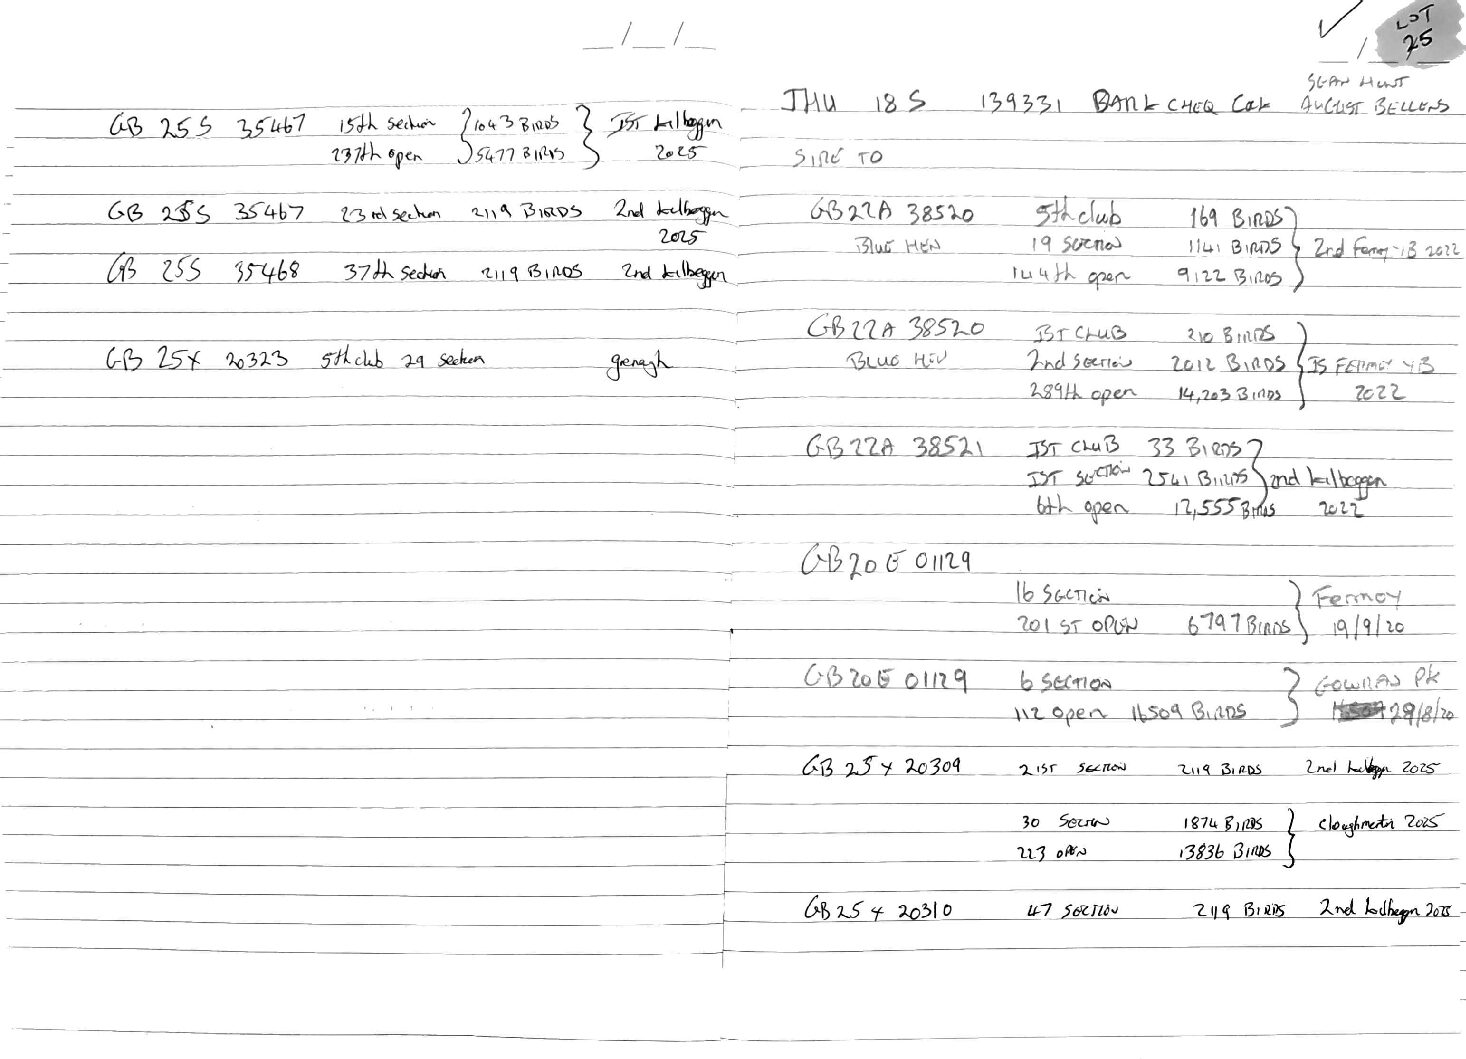 __/__/__
GB 25S 35467 15th section } 1043 BIRDS } 1ST kilbeggan
237th open } 5477 BIRDS } 2025
GB 25S 35467 23rd section 2119 BIRDS 2nd kilbeggan
2025
GB 25S 35468 37th section 2119 BIRDS 2nd kilbeggan
GB 25X 20323 5th club 29 section grenagh
✓ LOT
25
SEAN HUNT
IHU 18 S 139331 BANK CHEQ COCK AUGUST BELLENS
SIRE TO
GB22A 38520 5th club 169 BIRDS
BLUE HEN 19 SECTION 1141 BIRDS } 2nd Fermoy YB 2022
144th open 9122 BIRDS
GB22A 38520 1ST CLUB 210 BIRDS
BLUE HEN 2nd SECTION 2012 BIRDS } 1S FERMOY YB
289th open 14,203 BIRDS 2022
GB22A 38521 1ST CLUB 33 BIRDS
1ST SECTION 2541 BIRDS } 2nd kilbeggan
6th open 12,555 BIRDS 2022
GB20E 01129
16 SECTION } Fermoy
201 ST OPEN 6797 BIRDS } 19/9/20
GB20E 01129 6 SECTION } GOWRAN PK
112 open 16509 BIRDS } 29/8/20
GB 25X 20309 21ST SECTION 2119 BIRDS 2nd kilbeggan 2025
30 SECTION 1874 BIRDS } cloughmartin 2025
223 OPEN 13836 BIRDS }
GB25X 20310 47 SECTION 2119 BIRDS 2nd kilbeggan 2025